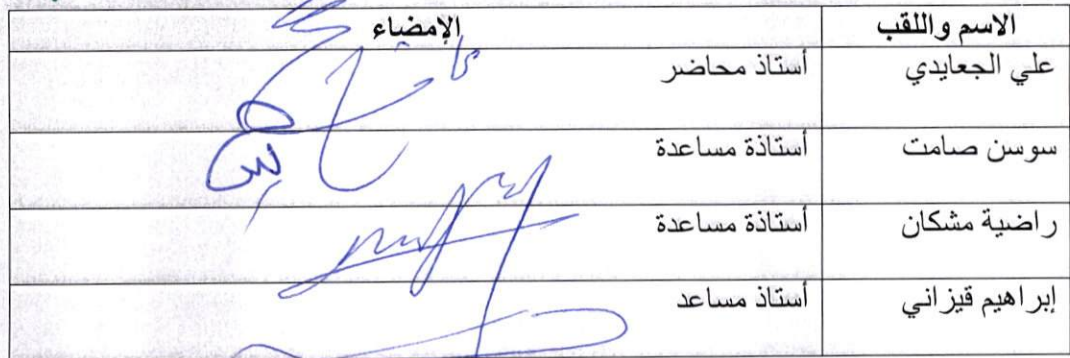 الاسم واللقب الإمضاء
علي الجعايدي أستاذ محاضر
سوسن صامت أستاذة مساعدة
راضية مشكان أستاذة مساعدة
إبراهيم قيزاني أستاذ مساعد